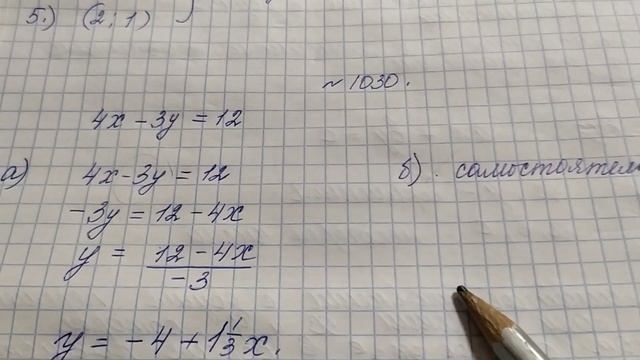 5.) (2; 1)
~ 1030.
4x - 3y = 12
а) 4x - 3y = 12
б). самостоятел
-3y = 12 - 4x
y = 12 - 4x / -3
y = -4 + 1 1/3 x.